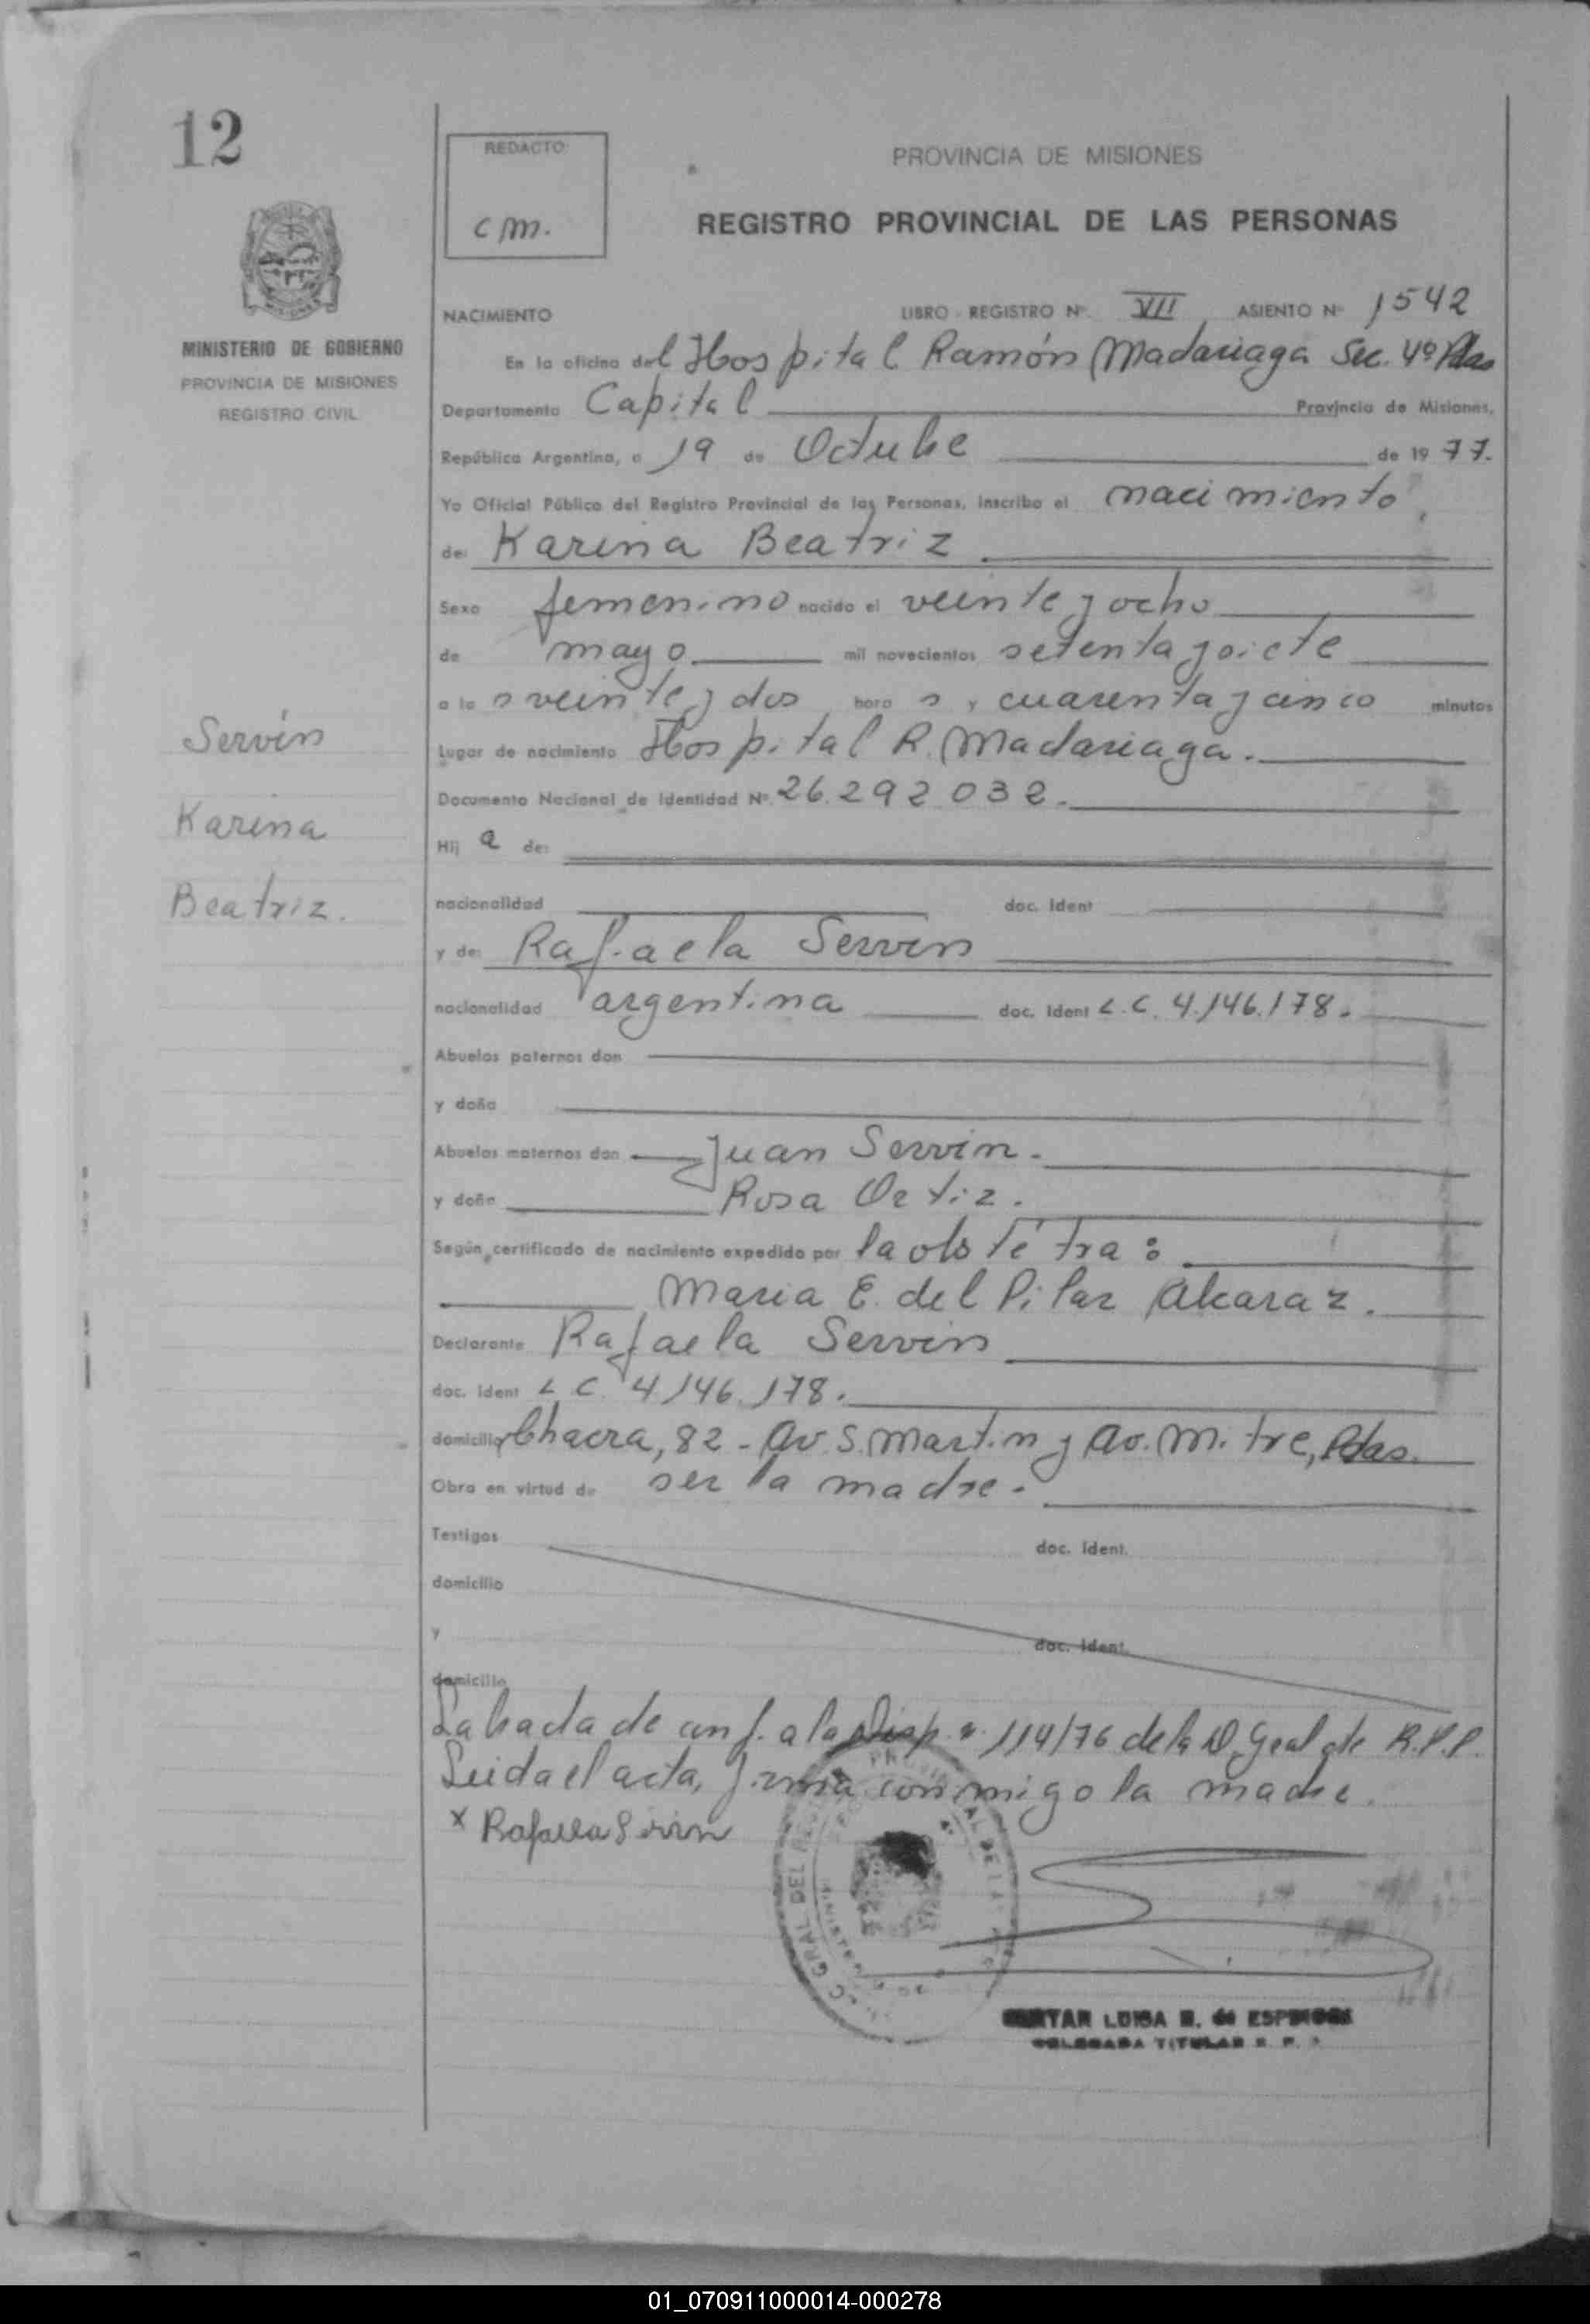 12
REDACTO:
cm.
PROVINCIA DE MISIONES
REGISTRO PROVINCIAL DE LAS PERSONAS
MINISTERIO DE GOBIERNO
PROVINCIA DE MISIONES
REGISTRO CIVIL
NACIMIENTO LIBRO - REGISTRO Nº. VII ASIENTO Nº 1542
En la oficina del Hospital Ramón Madariaga Sec. 4º Pdas
Departamento Capital Provincia de Misiones,
República Argentina, a 19 de Octubre de 1977.
Yo Oficial Público del Registro Provincial de las Personas, inscribo el nacimiento
de: Karina Beatriz
Sexo femenino nacido el veinte y ocho
de mayo mil novecientos setenta y siete
a las veinte y dos horas y cuarenta y cinco minutos
Lugar de nacimiento Hospital R. Madariaga.
Documento Nacional de Identidad Nº. 26.292.032.
Servin
Karina
Beatriz.
Hij a de:
nacionalidad doc. Ident
y de: Rafaela Servin
nacionalidad argentina doc. Ident L.C. 4.146.178.
Abuelos paternos don
y doña
Abuelos maternos don Juan Servin.
y doña Rosa Ortiz.
Según certificado de nacimiento expedido por la obstétra:
Maria E. del Pilar Alcaraz.
Declarante Rafaela Servin
doc. ident L.C. 4.146.178.
domicilio Chacra, 82 - Av. S. Martin y Av. Mitre, Pdas.
Obra en virtud de ser la madre.
Testigos doc. Ident.
domicilio
y doc. Ident.
domicilio
Labrada de conf. a la Disp. n. 114/76 de la D. Gral de R.P.P.
Leida el acta, firma conmigo la madre.
x Rafaela Servin
GRAL DEL
LUISA E. de
TITULAR
01_070911000014-000278